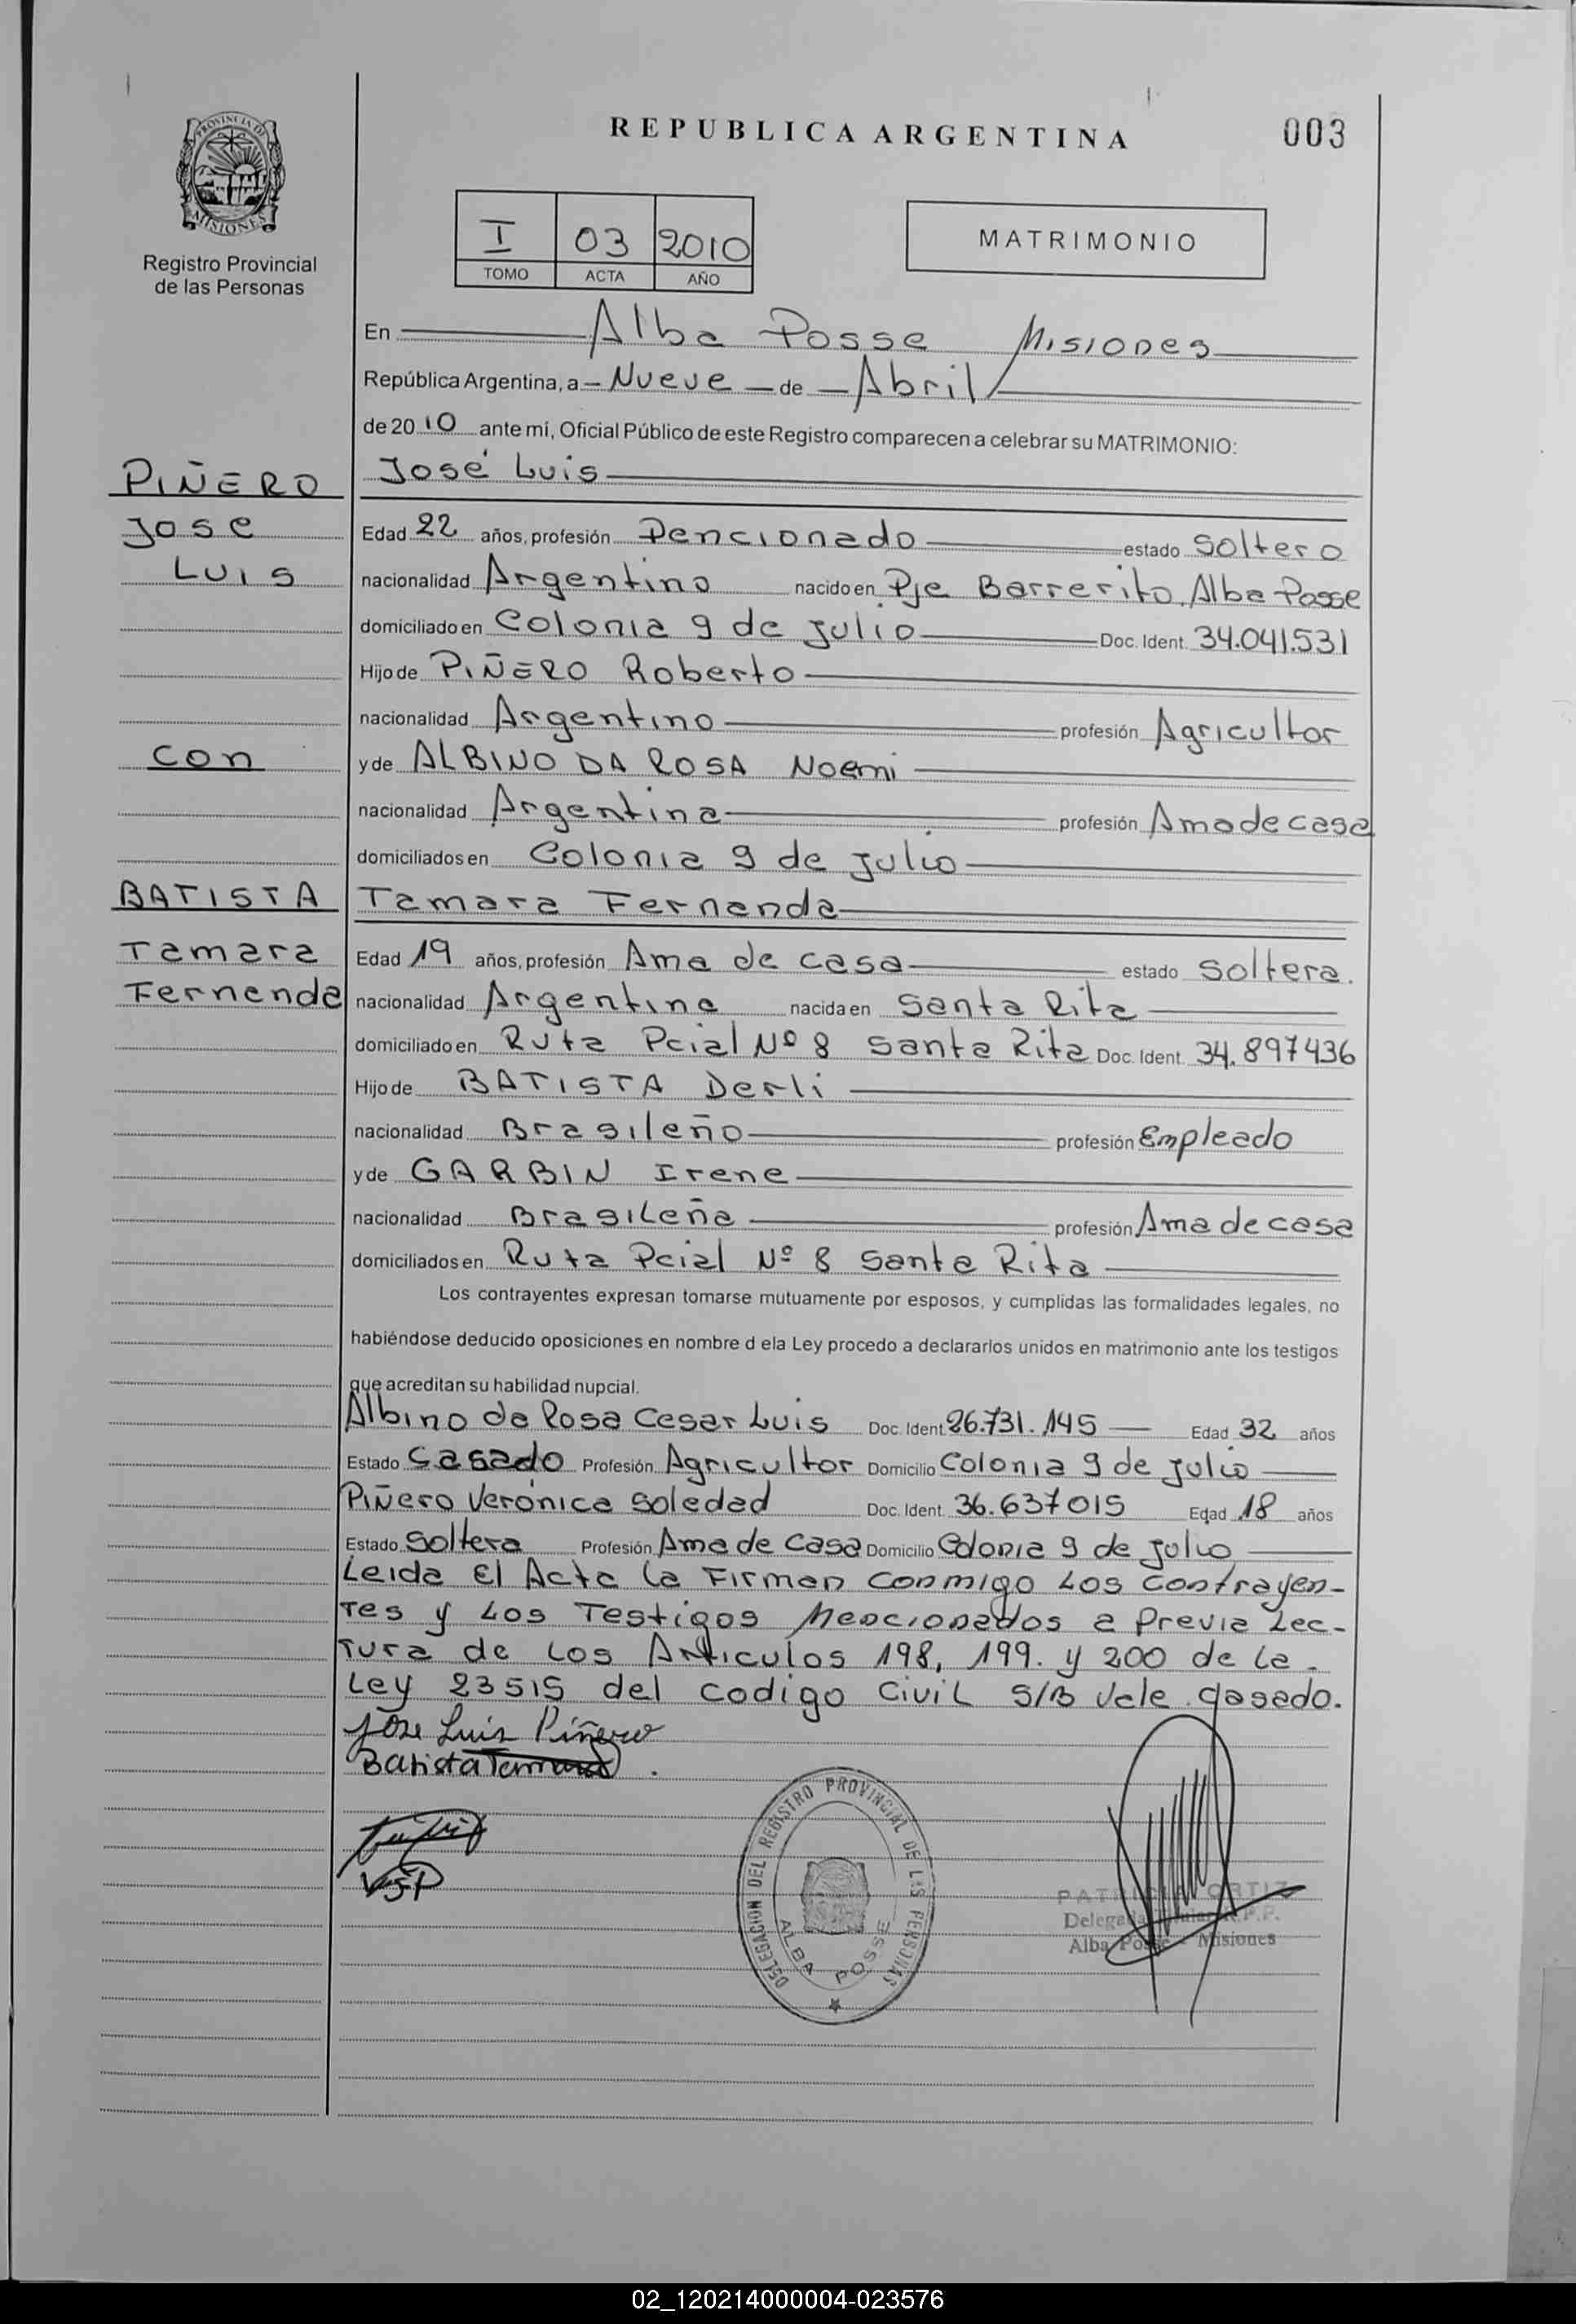 REPUBLICA ARGENTINA
003
PROVINCIA DE
MISIONES
Registro Provincial
de las Personas
I 03 2010
TOMO ACTA AÑO
MATRIMONIO
En Alba Posse Misiones
República Argentina, a Nueve de Abril
de 20 10 ante mí, Oficial Público de este Registro comparecen a celebrar su MATRIMONIO:
PIÑERO José Luis
Jose Edad 22 años, profesión Pencionado estado Soltero
Luis nacionalidad Argentino nacido en Pje Barrerito. Alba Posse
domiciliado en Colonia 9 de julio Doc. Ident. 34.041.531
Hijo de PIÑERO Roberto
nacionalidad Argentino profesión Agricultor
con y de ALBINO DA ROSA Noemi
nacionalidad Argentina profesión Ama de casa
domiciliados en Colonia 9 de julio
BATISTA Tamara Fernanda
Tamara Edad 19 años, profesión Ama de casa estado soltera.
Fernanda nacionalidad Argentina nacida en Santa Rita
domiciliado en Ruta Pcial Nº 8 Santa Rita Doc. Ident. 34.897436
Hijo de BATISTA Derli
nacionalidad Brasileño profesión Empleado
y de GARBIN Irene
nacionalidad Brasileña profesión Ama de casa
domiciliados en Ruta Pcial Nº 8 Santa Rita
Los contrayentes expresan tomarse mutuamente por esposos, y cumplidas las formalidades legales, no
habiéndose deducido oposiciones en nombre d ela Ley procedo a declararlos unidos en matrimonio ante los testigos
que acreditan su habilidad nupcial.
Albino da Rosa Cesar Luis Doc. Ident. 26.731.145 Edad 32 años
Estado Casado Profesión Agricultor Domicilio Colonia 9 de julio
Piñero Verónica Soledad Doc. Ident. 36.637015 Edad 18 años
Estado Soltera Profesión Ama de Casa Domicilio Colonia 9 de julio
Leida El Acta la Firman conmigo Los contrayen-
tes y Los Testigos Mencionados a Previa Lec-
tura de Los Articulos 198, 199. y 200 de la
Ley 23515 del codigo Civil S/B Vale. casado.
Jose Luis Piñero
Batista Tamara
VSP
DELEGACION DEL REGISTRO PROVINCIAL DE LAS PERSONAS
ALBA POSSE
PATRICIA ORTIZ
Delegada Titular R.P.P.
Alba Posse - Misiones
02_120214000004-023576